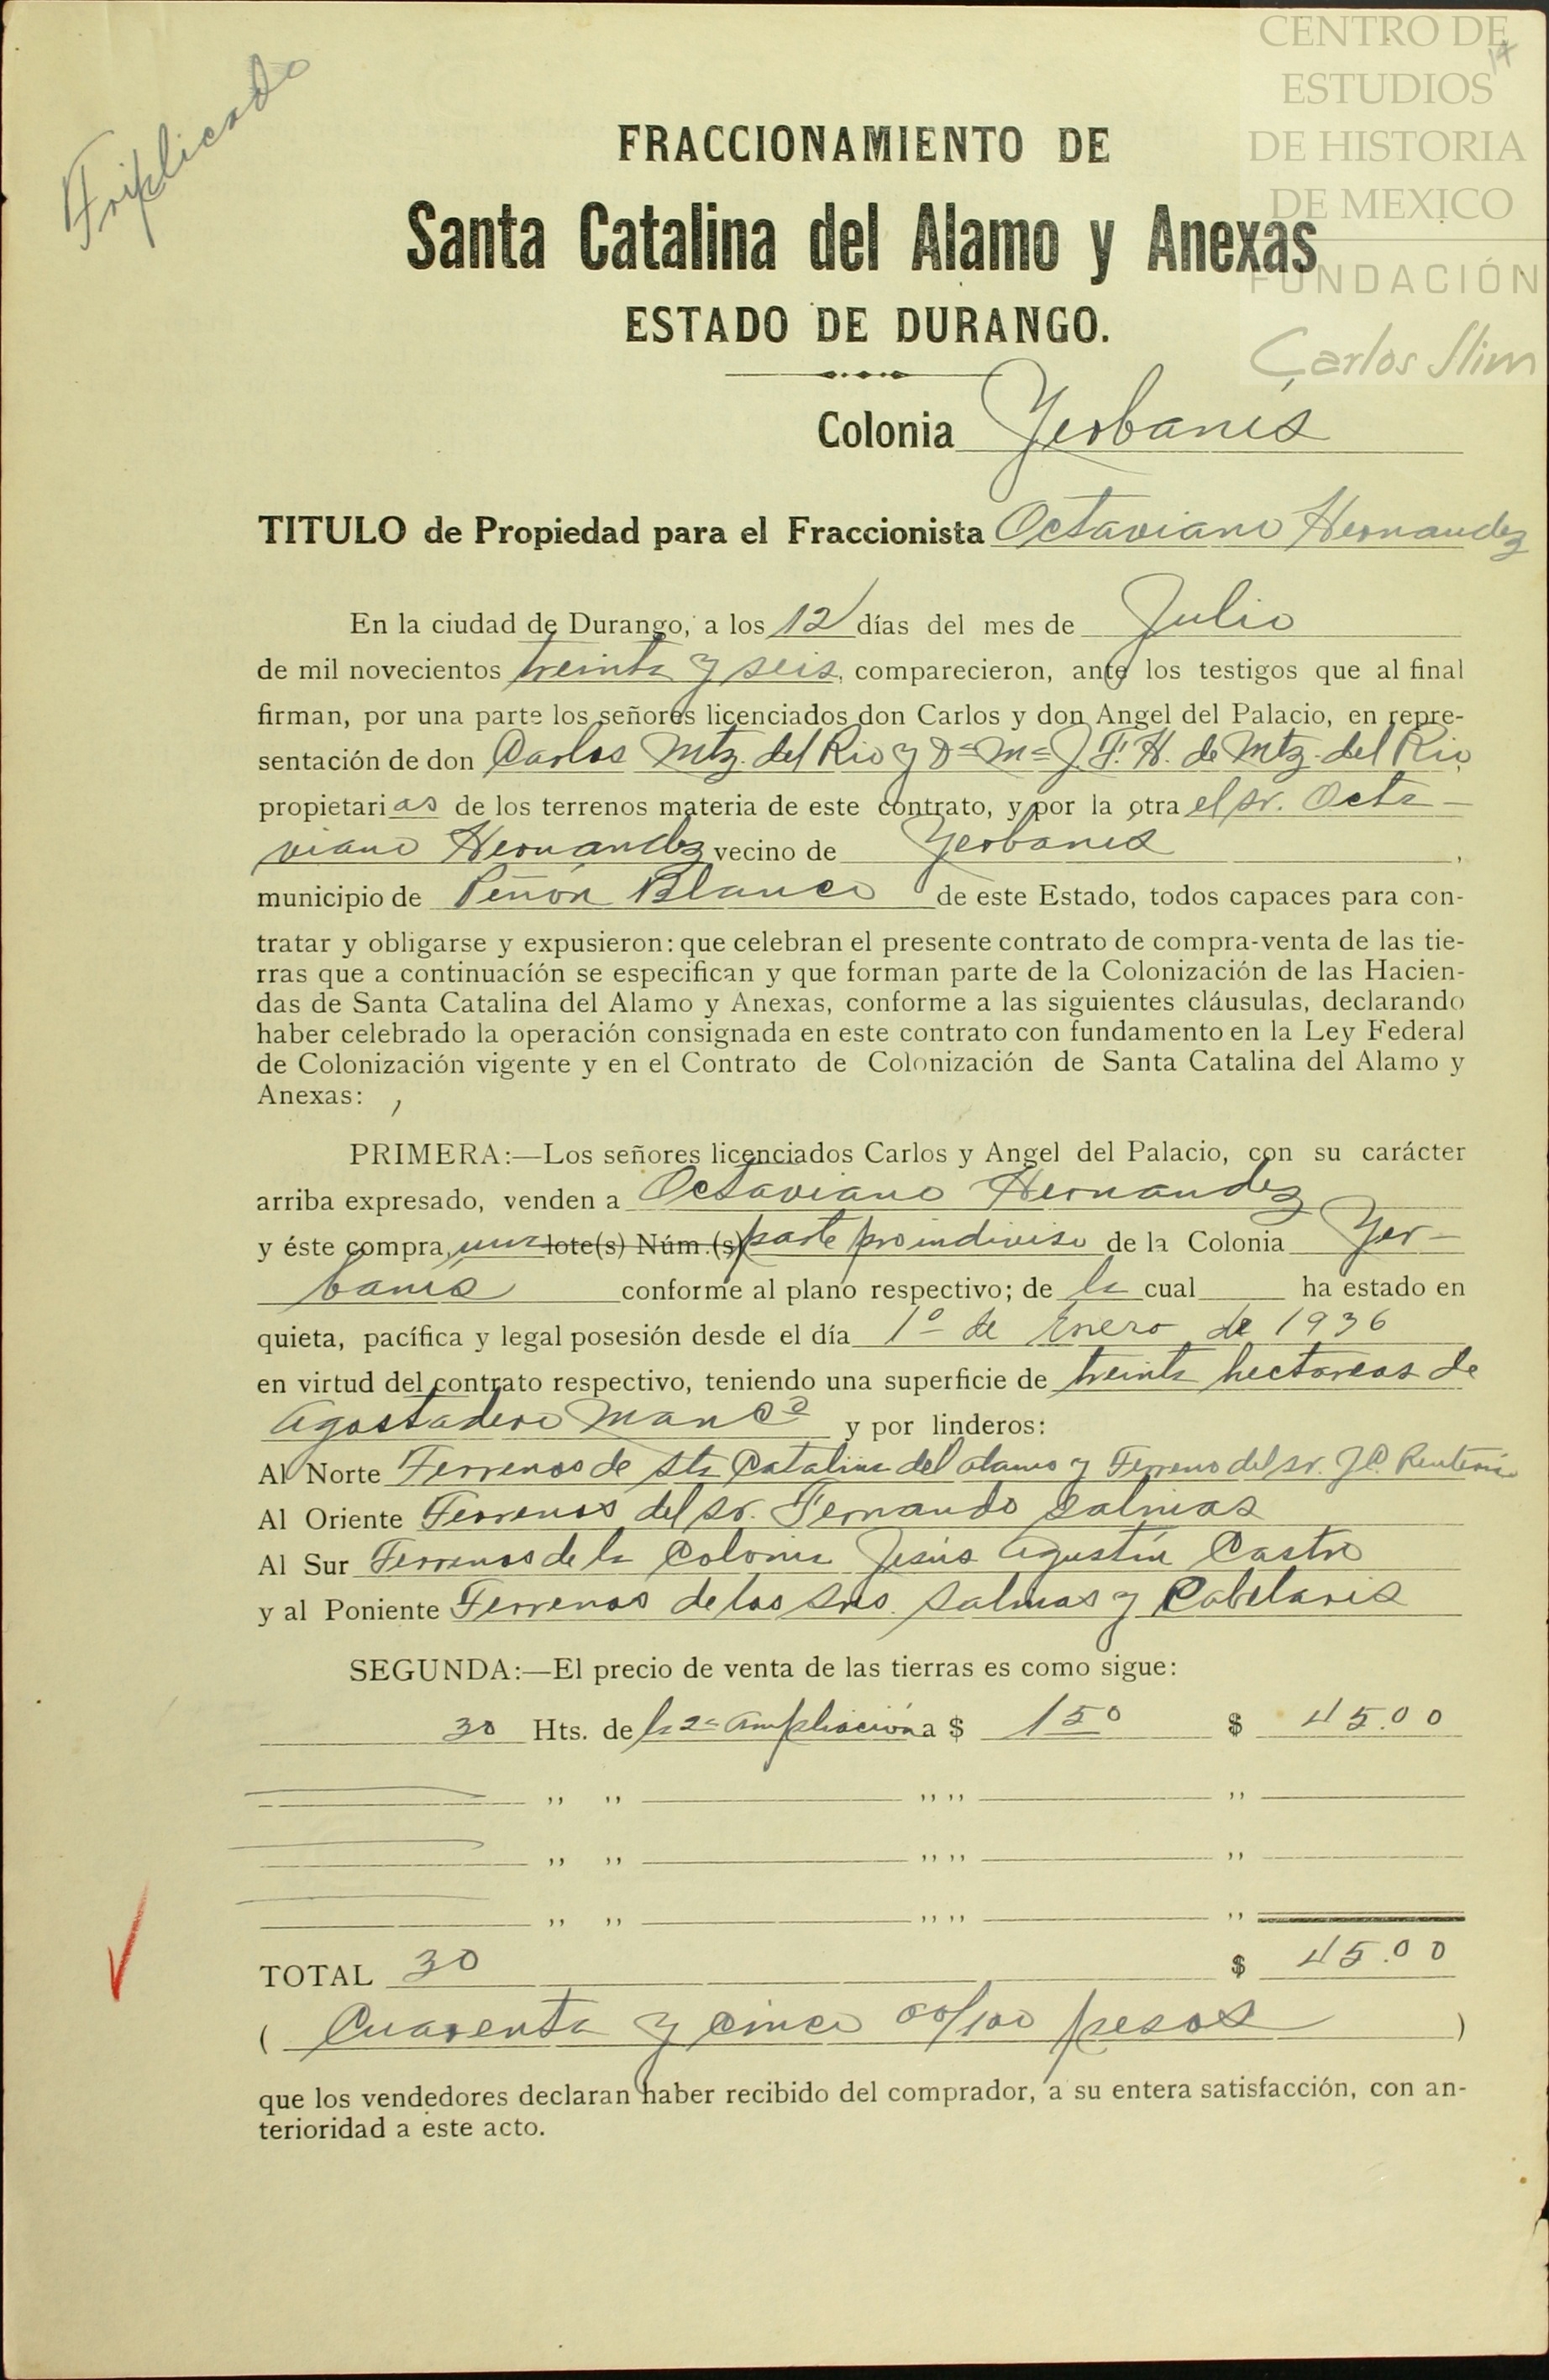 CENTRO DE
ESTUDIOS
DE HISTORIA
DE MEXICO
FUNDACIÓN
Carlos Slim
14
Triplicado
FRACCIONAMIENTO DE
Santa Catalina del Alamo y Anexas
ESTADO DE DURANGO.
Colonia Yerbanis
TITULO de Propiedad para el Fraccionista Octaviano Hernandez
En la ciudad de Durango, a los 12 días del mes de Julio
de mil novecientos treinta y seis, comparecieron, ante los testigos que al final
firman, por una parte los señores licenciados don Carlos y don Angel del Palacio, en repre-
sentación de don Carlos Mtz. del Rio y Dª Mª J. F. H. de Mtz. del Rio
propietarias de los terrenos materia de este contrato, y por la otra el sr. Octa-
viano Hernandez vecino de Yerbanis,
municipio de Peñón Blanco de este Estado, todos capaces para con-
tratar y obligarse y expusieron: que celebran el presente contrato de compra-venta de las tie-
rras que a continuación se especifican y que forman parte de la Colonización de las Hacien-
das de Santa Catalina del Alamo y Anexas, conforme a las siguientes cláusulas, declarando
haber celebrado la operación consignada en este contrato con fundamento en la Ley Federal
de Colonización vigente y en el Contrato de Colonización de Santa Catalina del Alamo y
Anexas:
PRIMERA:—Los señores licenciados Carlos y Angel del Palacio, con su carácter
arriba expresado, venden a Octaviano Hernandez
y éste compra, una lote(s) Núm.(s) parte proindiviso de la Colonia Yer-
banis conforme al plano respectivo; de la cual ha estado en
quieta, pacífica y legal posesión desde el día 1º de Enero de 1936
en virtud del contrato respectivo, teniendo una superficie de treinta hectareas de
agostadero Manc° y por linderos:
Al Norte Terrenos de Sta Catalina del alamo y Terreno del sr. J.C. Renteria
Al Oriente Terrenos del Sr. Fernando Salinas
Al Sur Terrenos de la Colonia Jesús Agustín Castro
y al Poniente Terrenos de los Srs. Salinas y
SEGUNDA:—El precio de venta de las tierras es como sigue:
30 Hts. de la 2ª ampliación a $ 1 50 $ 45.00
,, ,, ,, ,, ,,
,, ,, ,, ,, ,,
,, ,, ,, ,, ,,
TOTAL 30 $ 45.00
( Cuarenta y cinco 00/100 pesos )
que los vendedores declaran haber recibido del comprador, a su entera satisfacción, con an-
terioridad a este acto.